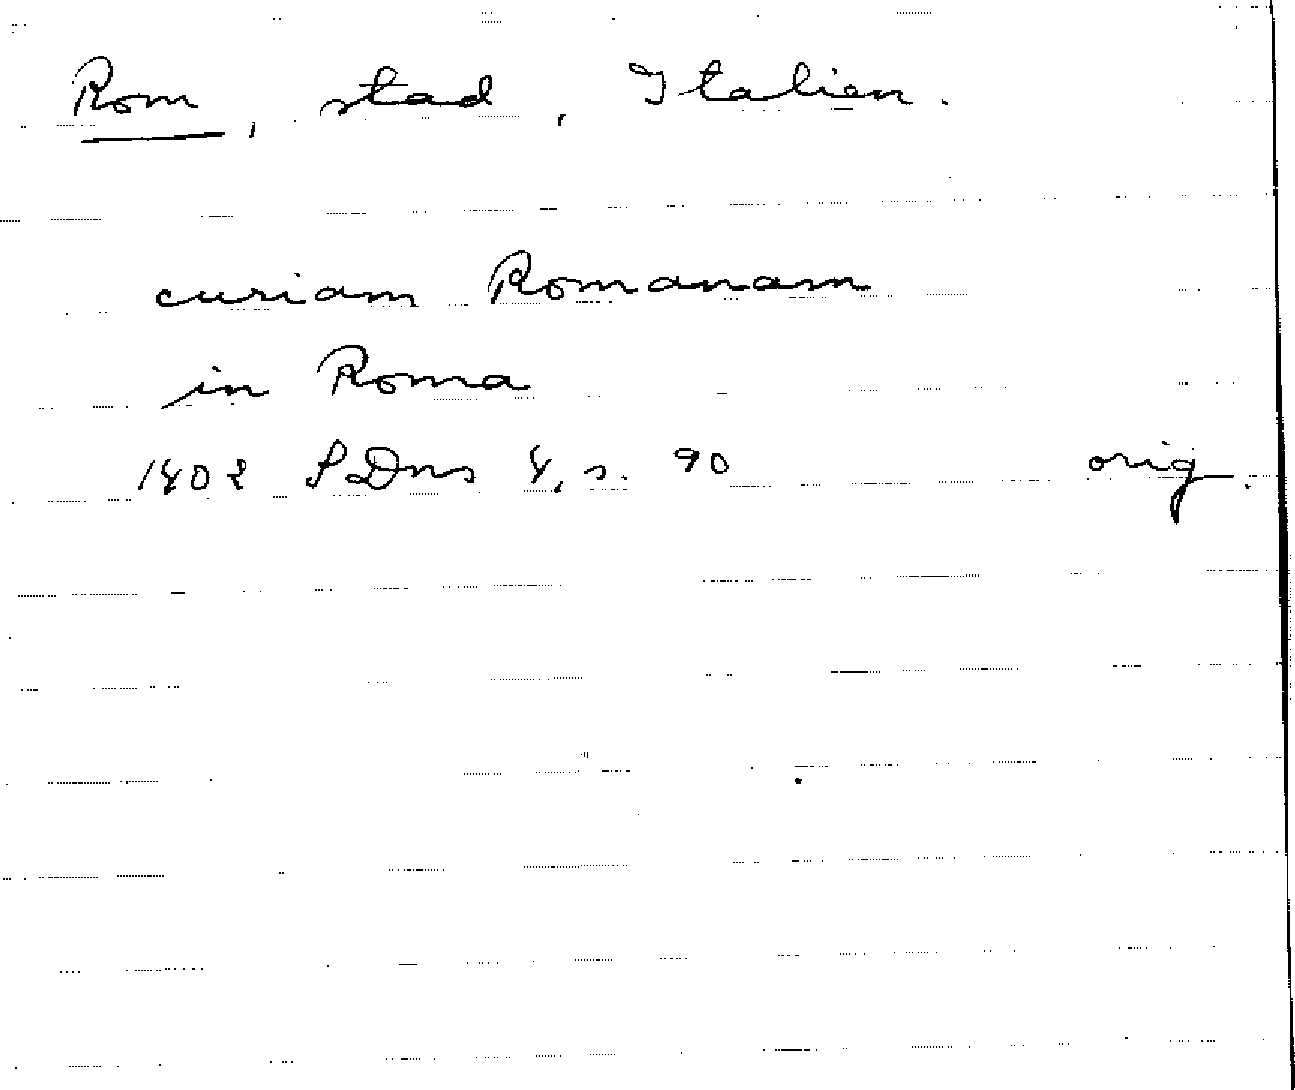 Rom, stad, Italien.
curiam Romanam
in Roma
1402 SDns 1, s. 90 orig.